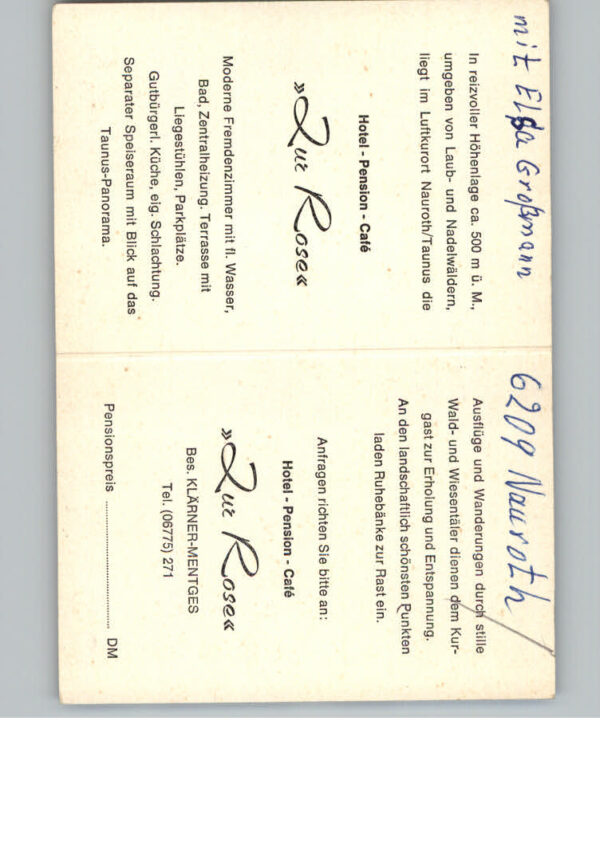 mit Elsa Großmann
In reizvoller Höhenlage ca. 500 m ü. M.,
umgeben von Laub- und Nadelwäldern,
liegt im Luftkurort Nauroth/Taunus die
Hotel - Pension - Café
»Zur Rose«
Moderne Fremdenzimmer mit fl. Wasser,
Bad, Zentralheizung. Terrasse mit
Liegestühlen, Parkplätze.
Gutbürgerl. Küche, eig. Schlachtung.
Separater Speiseraum mit Blick auf das
Taunus-Panorama.
6209 Nauroth
Ausflüge und Wanderungen durch stille
Wald- und Wiesentäler dienen dem Kur-
gast zur Erholung und Entspannung.
An den landschaftlich schönsten Punkten
laden Ruhebänke zur Rast ein.
Anfragen richten Sie bitte an:
Hotel - Pension - Café
»Zur Rose«
Bes. KLÄRNER-MENTGES
Tel. (06775) 271
Pensionspreis ........................................ DM